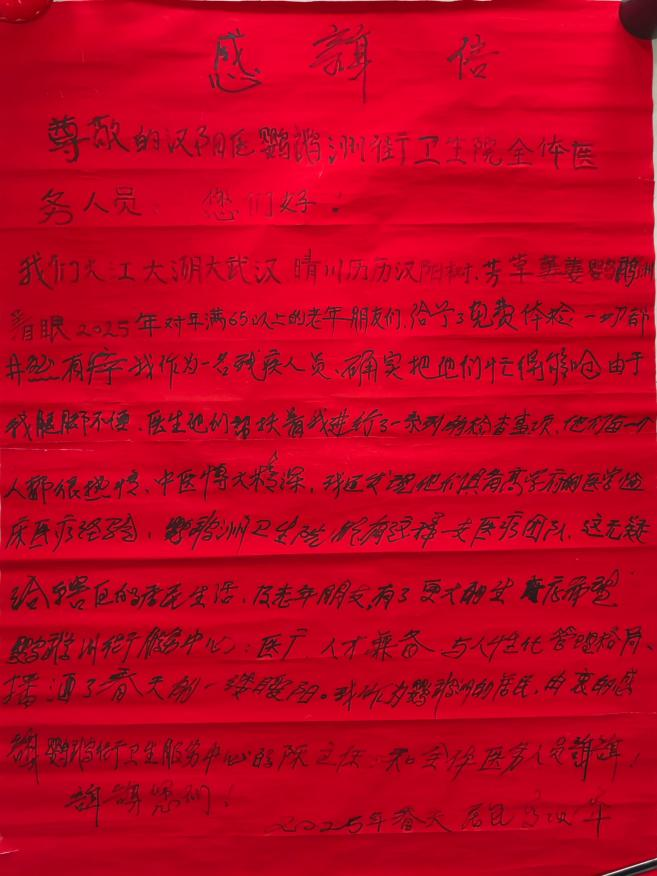 感谢信
尊敬的汉阳区鹦鹉洲街卫生院全体医
务人员: 您们好!
我们大江大湖大武汉 晴川历历汉阳树.芳草萋萋鹦鹉洲
着眼2025年对年满65以上的老年朋友们,给予了免费体检一切都
井然有序 我作为一名残疾人员、确实把他们忙得够呛 由于
我腿脚不便、医生他们帮扶着我进行了一系列的检查事项、他们每一个
人都很热情、中医博大精深、我还发现他们具备高学府的医学临
床医疗经验、鹦鹉洲卫生院能有这样一支医疗团队、这无疑
给辖区的居民生活、及老年朋友,有了更大的生存希望
鹦鹉洲街服务中心:医疗人才兼备 与人性化管理格局、
播洒了春天的一缕暖阳。我作为鹦鹉洲的居民,由衷的感
谢鹦鹉街卫生服务中心的陈主任、和全体医务人员谢谢,
谢谢您们!
2025年春天 居民